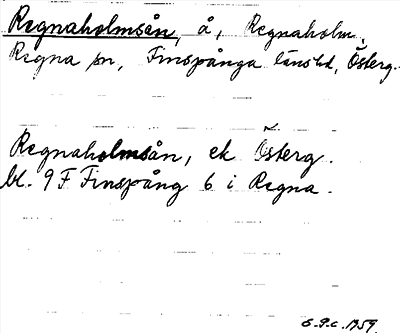 Regnaholmsån, å, Regnaholm,
Regna sn, Finspånga länshd, Österg.
Regnaholmsån, ek Österg.
bl. 9 F Finspång 6 i Regna.
S.g.c. 1959